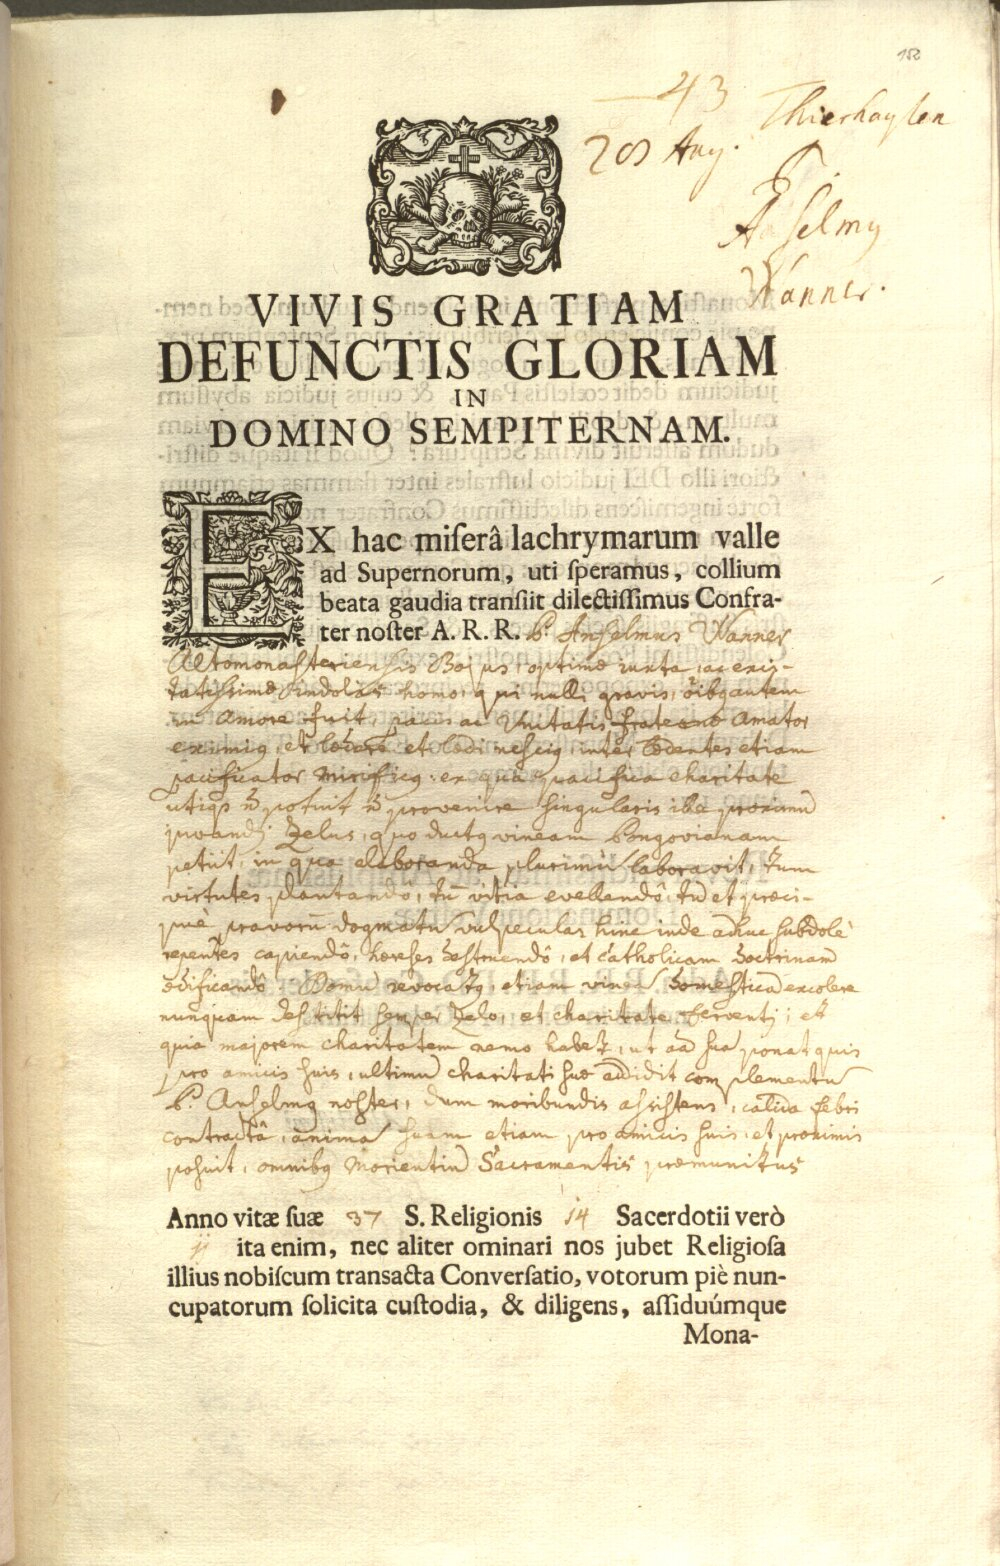 152
43
Thierhaupten
28 Aug.
P.
Anselmꝰ
Wanner.
VIVIS GRATIAM
DEFUNCTIS GLORIAM
IN
DOMINO SEMPITERNAM.
EX hac miſerâ lachrymarum valle
ad Supernorum, uti ſperamus, collium
beata gaudia transiit dilectiſſimus Confra-
ter noſter A. R. R. P. Anselmus Wanner
Altomonasteriensis Bojus, optimæ iuxta, ac exci-
tatissimæ Indolis homo, qui nulli gravis, oĩbꝰ autem
in amore fuit, pacis ac Unitatis fraternæ Amator
eximiꝰ, et lædere et lædi nesciꝰ inter lædentes etiam
pacificator mirificꝰ: ex qua pacifica charitate
utiqꝫ ñ potuit ñ provenire singularis ille proximũ
juvandj Zelus, quo ductꝰ vineam Pongovianam
petiit, in qua elaboranda plurimũ laboravit, tum
virtutes plantando, tũ vitia evellendô, tũ et præci-
puè pravorũ dogmatũ vulpeculas hinc inde adhuc subdolè
repentes capiendô, hæreses destruendô, et catholicam doctrinam
ædificandô. Domũ revocatꝰ, etiam vineã domesticã excolere
nunquam destitit semper Zelo, et charitate ferventj; et
quia majorem charitatem nemo habet, ut aĩã suã ponat quis
pro amicis suis, ultimũ charitati suæ addidit complementũ
P. Anselmꝰ noster, dum moribundis assistens, calida febri
contractâ, animã suam etiam pro amicis suis, et proximis
posuit, omnibꝰ Morientiũ Sacramentis præmunitus
Anno vitæ ſuæ 37 S. Religionis 14 Sacerdotii verò
11 ita enim, nec aliter ominari nos jubet Religioſa
illius nobiſcum transacta Converſatio, votorum piè nun-
cupatorum ſolicita cuſtodia, & diligens, aſſiduúmque
Mona-